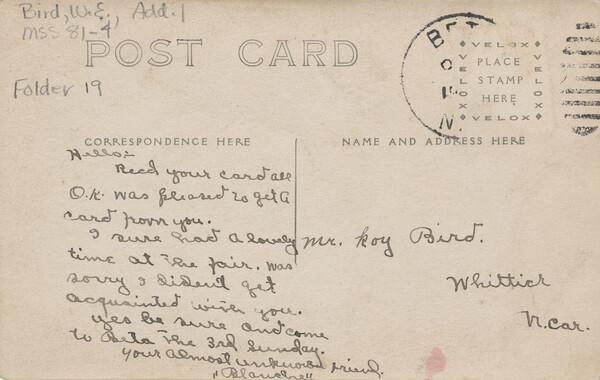 Bird, W.E., Add. 1
MSS 81-4
Folder 19
POST CARD
VELOX
VELOX
PLACE
STAMP
HERE
VELOX
VELOX
CORRESPONDENCE HERE
NAME AND ADDRESS HERE
Hello:-
Recd your card all
O.K. was pleased to get a
card from you.
I sure had a lovely
time at the fair. was
sorry I dident get
acquainted with you.
yes be sure and come
to Beta the 3rd Sunday.
your almost unknown friend.
"Blanche"
Mr. Roy Bird.
Whittier
N. Car.